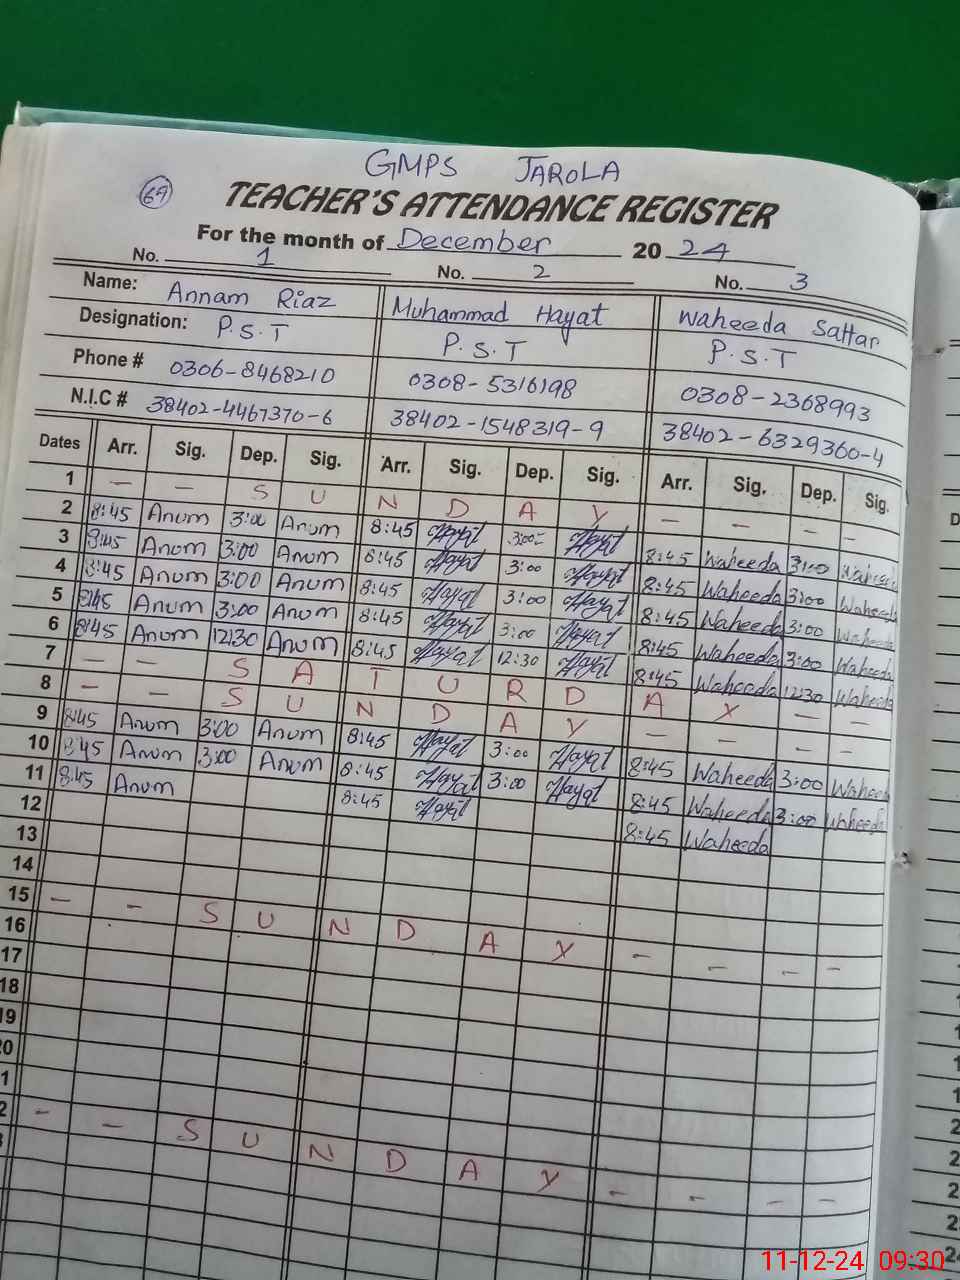 GMPS JAROLA
69
TEACHER'S ATTENDANCE REGISTER
For the month of December 20 24
No. 1 No. 2 No. 3
Name: Annam Riaz Muhammad Hayat Waheeda Sattar
Designation: P.S.T P.S.T P.S.T
Phone # 0306-8468210 0308-5316198 0308-2368993
N.I.C # 38402-4467370-6 38402-1548319-9 38402-6329360-4
Dates Arr. Sig. Dep. Sig. Arr. Sig. Dep. Sig. Arr. Sig. Dep. Sig.
1 - - S U N D A Y - - - -
2 8:45 Anum 3:00 Anum 8:45 Hayat 3:00 Hayat 8:45 Waheeda 3:00 Waheeda
3 8:45 Anum 3:00 Anum 8:45 Hayat 3:00 Hayat 8:45 Waheeda 3:00 Waheeda
4 8:45 Anum 3:00 Anum 8:45 Hayat 3:00 Hayat 8:45 Waheeda 3:00 Waheeda
5 8:45 Anum 3:00 Anum 8:45 Hayat 3:00 Hayat 8:45 Waheeda 3:00 Waheeda
6 8:45 Anum 12:30 Anum 8:45 Hayat 12:30 Hayat 8:45 Waheeda 12:30 Waheeda
7 - - S A T U R D A Y - -
8 - - S U N D A Y - - - -
9 8:45 Anum 3:00 Anum 8:45 Hayat 3:00 Hayat 8:45 Waheeda 3:00 Waheeda
10 8:45 Anum 3:00 Anum 8:45 Hayat 3:00 Hayat 8:45 Waheeda 3:00 Waheeda
11 8:45 Anum 8:45 Hayat 8:45 Waheeda
12
13
14
15 - - S U N D A Y - - - -
16
17
18
19
20
1
2 - - S U N D A Y - - - -
11-12-24 09:30